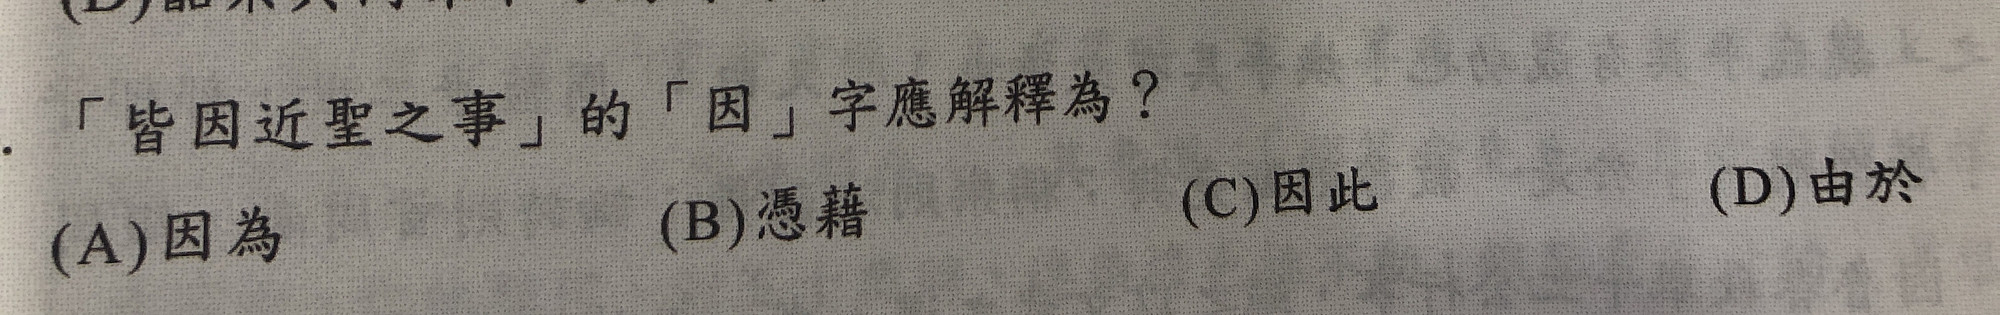 「皆因近聖之事」的「因」字應解釋為？
(A)因為 (B)憑藉 (C)因此 (D)由於